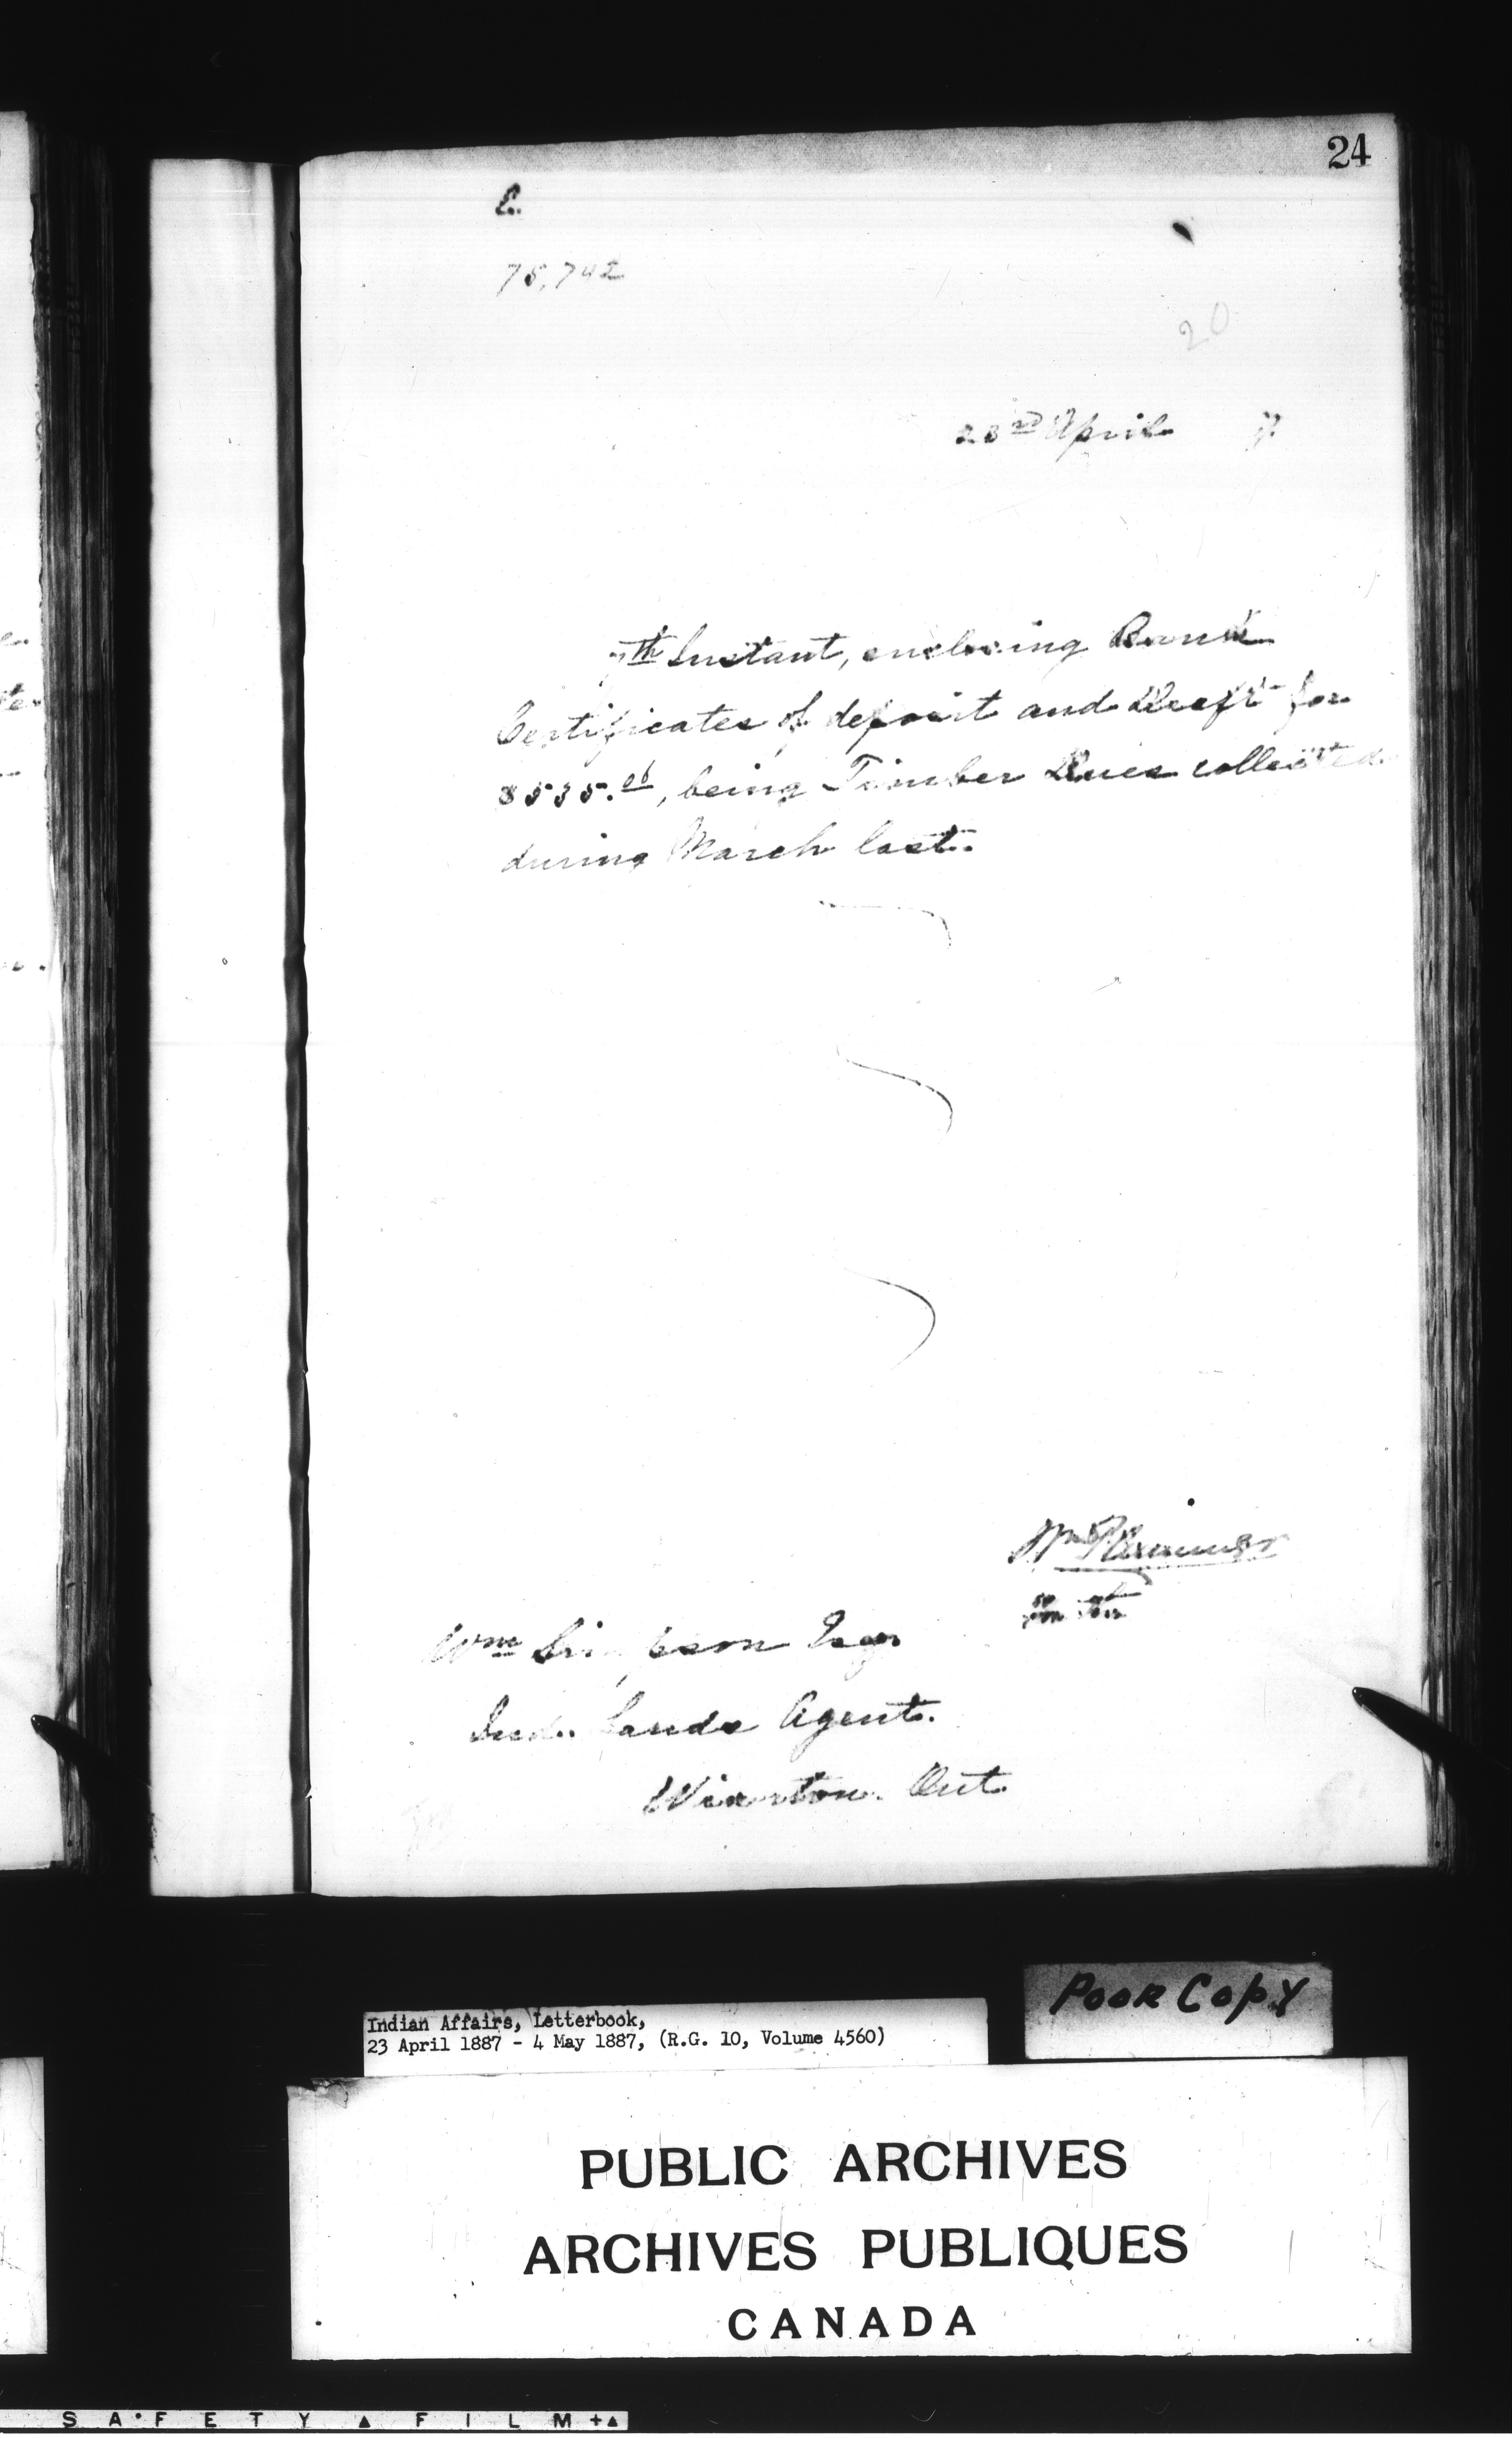 24
75,742
20
23rd April 7
7th Instant, enclosing Bank
Certificates of deposit and Draft for
$535.06, being Timber Dues collected
during March last.
Wm Plummer
Wm Simpson Esqr
Ind. Lands Agent.
Wiarton. Ont
POOR COPY
Indian Affairs, Letterbook,
23 April 1887 - 4 May 1887, (R.G. 10, Volume 4560)
PUBLIC ARCHIVES
ARCHIVES PUBLIQUES
CANADA
SAFETY FILM